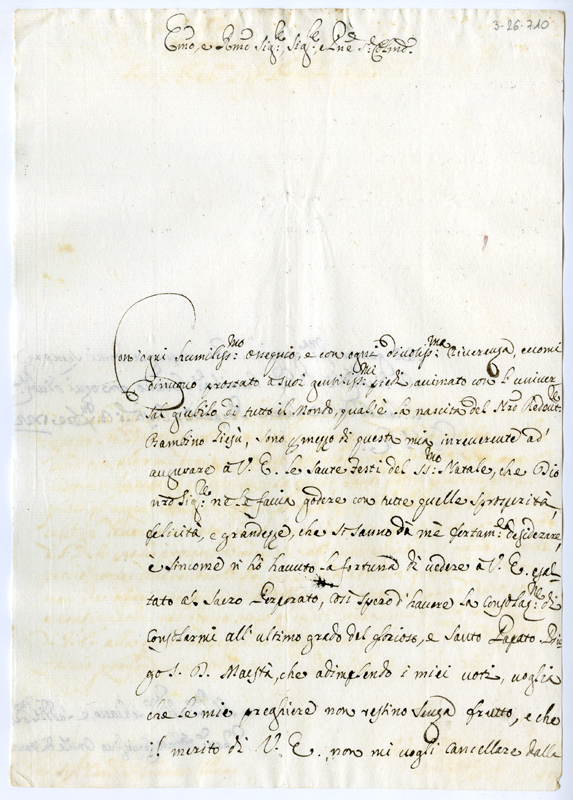 3-26-710
Emo, e Rmo Sig:re, Sig:re, e Pne
Con ogni humiliss:mo ossequio, e con ogni divotiss:ma riverenza, eccomi
di nuovo prostrato a suoi gentiliss:mi piedi animato con l'univer
sal giubilo di tutto il Mondo, qual'è la nascita del Nro Redent:re
Bambino Giesù, sono p mezzo di questa mia irreverente ad'
augurare à V. E. le Sante Feste del SS:mo Natale, che Dio
nro Sig:re ne le faccia godere con tutte quelle prosperità,
felicità, e grandezze, che si sanno da mè desiderare,
è sincome n hò havuto la fortuna di vedere à V. E. esal-
tato al Sacro Porporato, così spero d'havere la consolaz:ne di
consolarmi all'ultimo grado del glorioso, e Santo Papato. Prie
go S. D. Maestà, che adimplendo i miei voti, voglia
che le mie preghiere non restino senza frutto, e che
il merito di V. E. non mi vogli cancellare dalle